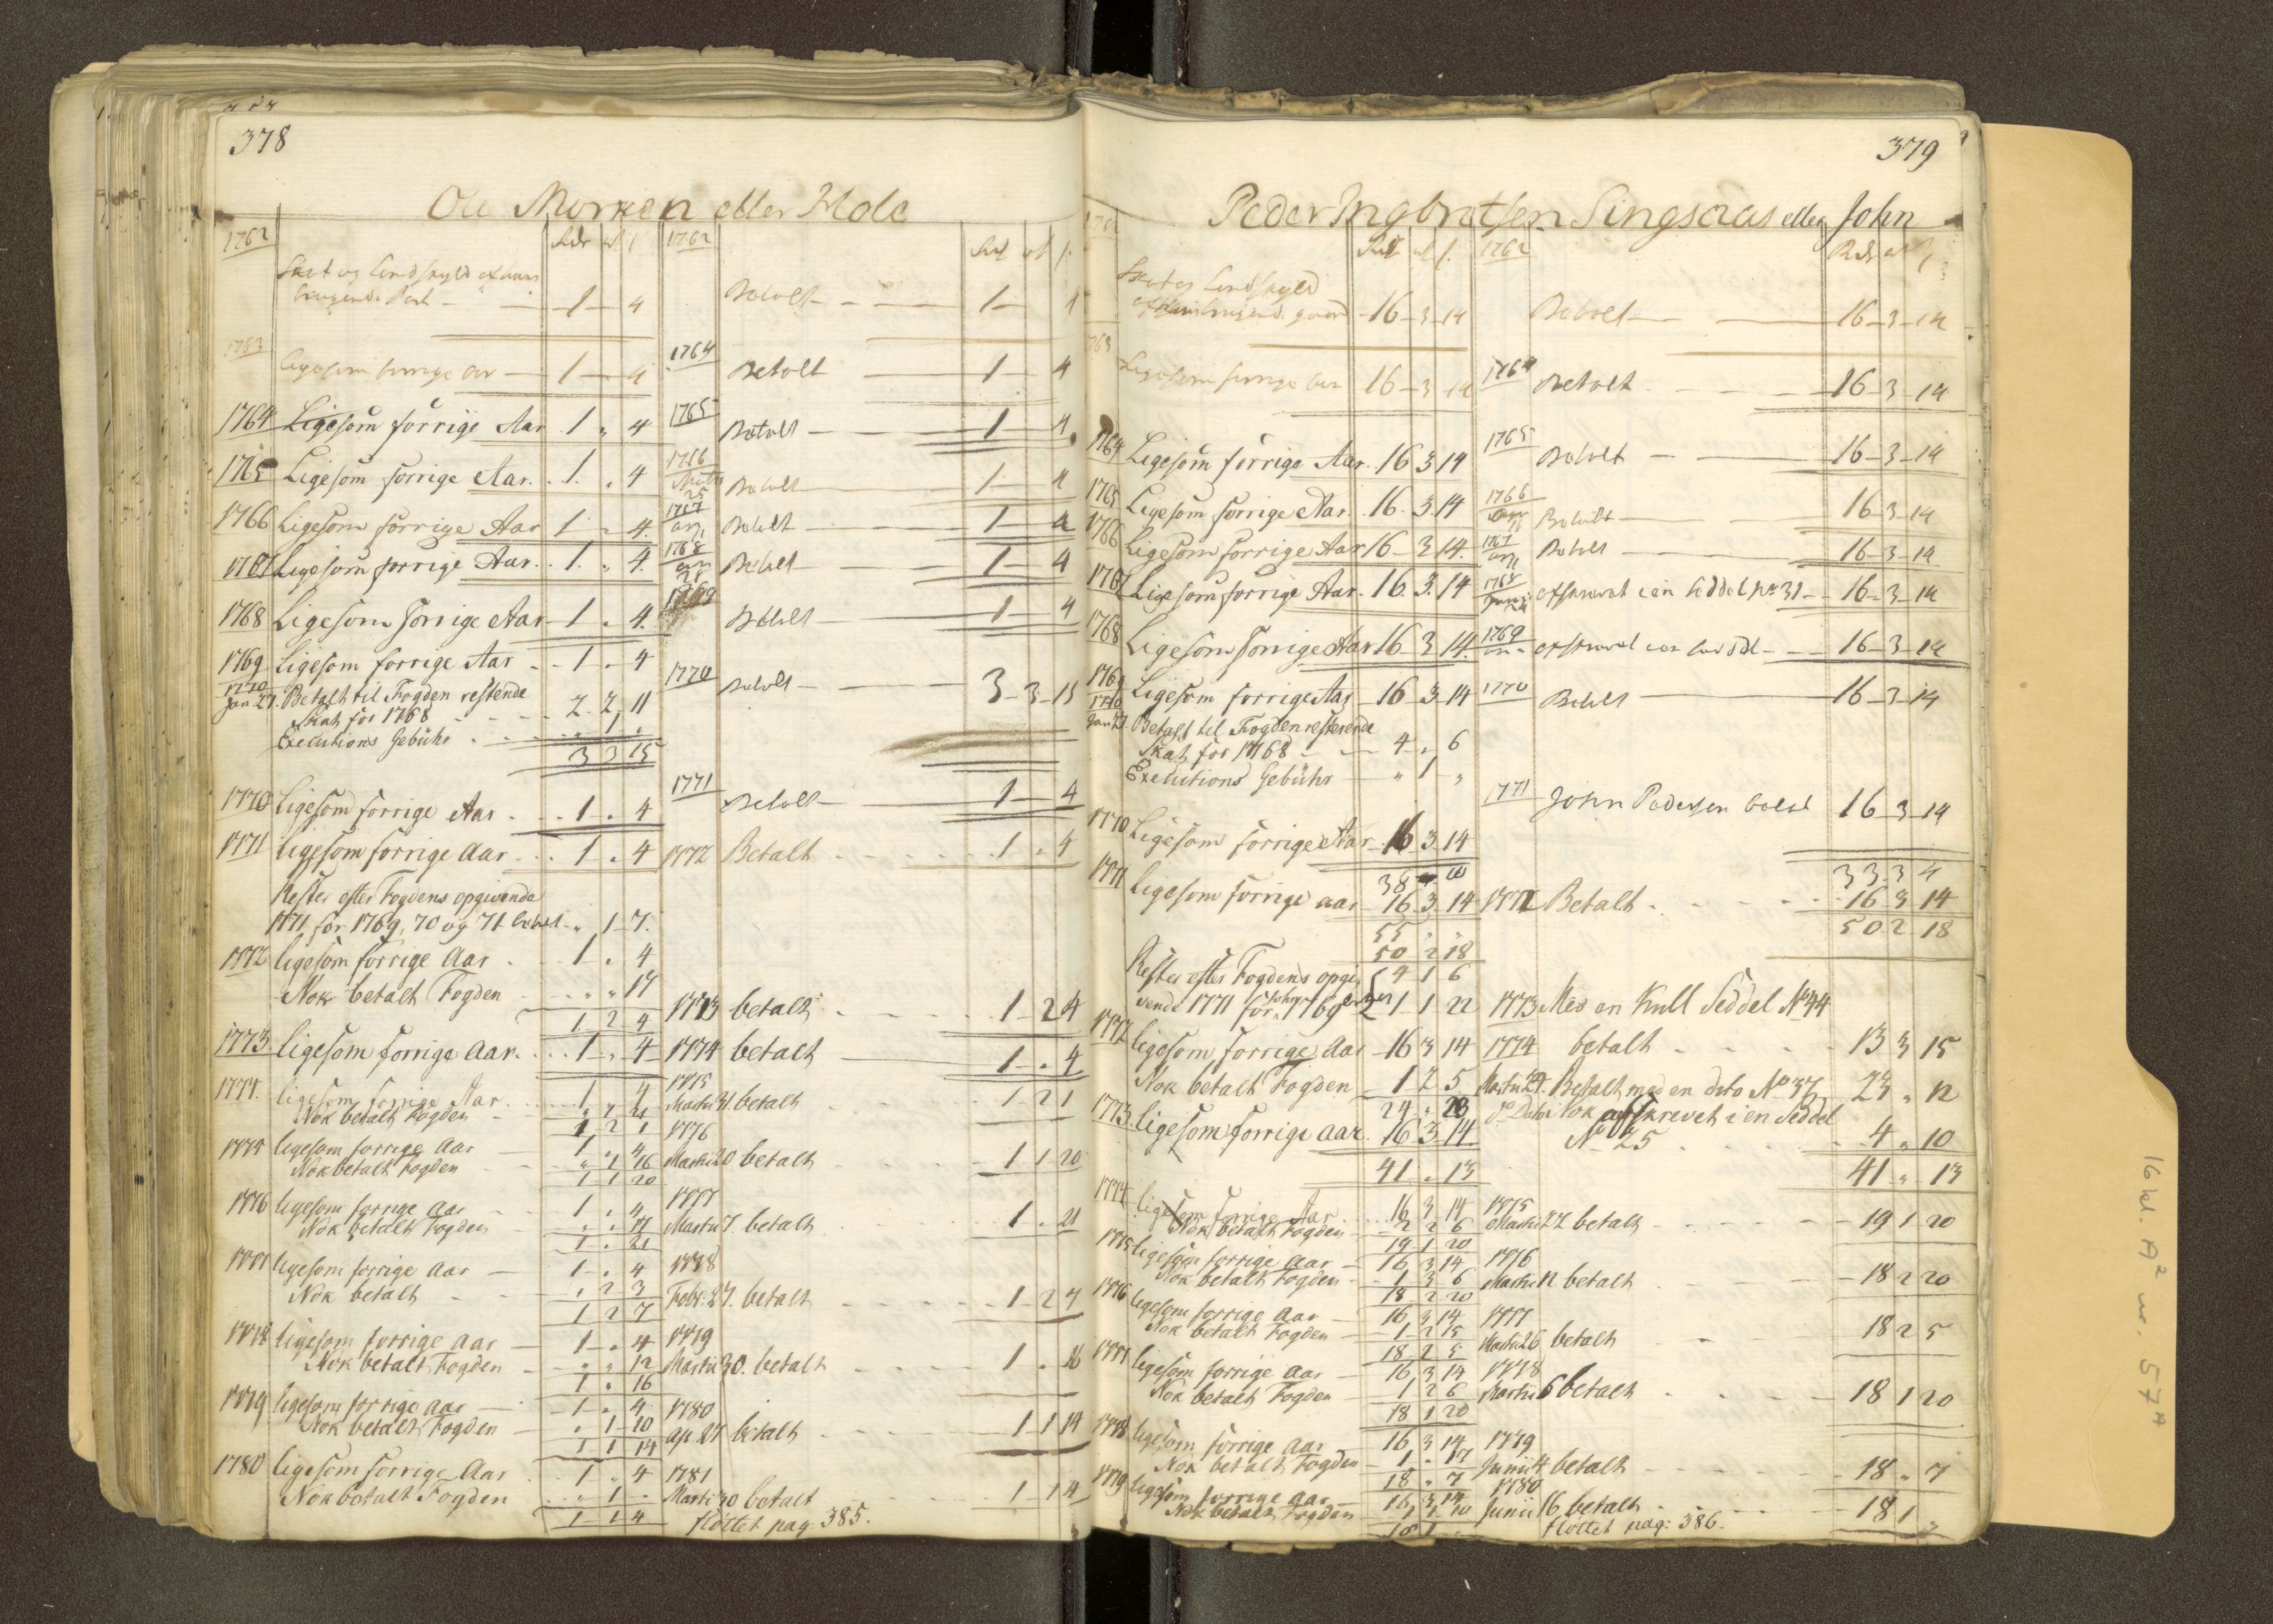 378
Ole Morken eller Hole
1762 Rdr ort s. 1762 Rdr ort s.
Skat og landskyld af hans
brugende Part - 1 - 4 Betalt - 1 - 4
1763 ligesom forrige aar - 1 - 4 1764 Betalt - 1 - 4
1764 Ligesom forrige Aar . 1 „ 4 1765 Betalt - 1 - 4
1765 Ligesom forrige Aar . 1 . „ 4 1766 25 Betalt - 1 - 4
1766 Ligesom forrige Aar 1 „ 4. 1767 Betalt - 1 - 4
1767 Ligesom forrige Aar . 1 . „ 4. 1768 28 Betalt - 1 - 4
1768 Ligesom forrige Aar - 1 „ 4. 1769 Betalt - 1 - 4
1769 Ligesom forrige Aar - 1 „ 4 1770 Betalt - 3 - 3 - 15
1770 Jan. 27. Betalt til Fogden restende
Skat for 1768 - 2. 2. 11
Executions Gebühr . „ 1 „
3 3 15
1770 Ligesom forrige Aar . 1 „ 4 1771 Betalt - 1 - 4
1771 ligesom forrige aar . 1 „ 4 1772 Betalt . 1 „ 4
Rester efter Fogdens opgivende
1771 for 1769, 70 og 71 betalt „ 1 - 7.
1772 ligesom forrige Aar . 1 „ 4
Nok betalt Fogden „ „ 17
1 2 4 1773 betalt . 1 - 2 4
1773. ligesom forrige Aar . 1 „ 4 1774 betalt - 1 „ 4
1774. ligesom forrige Aar . 1 „ 4 1775
Nok betalt Fogden - „ 1 21 Martii 31. betalt . 1 2 1
1 2 1
1775 ligesom forrige Aar 1 „ 4 1776
Nok betalt Fogden „ 1 16 Martii 20 betalt . 1 1 20
1 1 20
1776 ligesom forrige Aar - 1 „ 4 1777
Nok betalt Fogden „ „ 17 Martii 7. betalt . 1 „ 21
1 „ 21
1777 ligesom forrige Aar - 1 „ 4 1778
Nok betalt - „ 2 3 Febr: 27. betalt . 1 - 2 7
1 2 7
1778 ligesom forrige Aar - 1 „ 4 1779
Nok betalt Fogden - „ „ 12 Martii 30. betalt . 1 „ 16
1 „ 16
1779 ligesom forrige Aar - 1 „ 4 1780
Nok betalt Fogden - „ 1 - 10 ap. 27 betalt . 1 1 14
1 1 14
1780 ligesom forrige Aar . 1 „ 4 1781
Nok betalt Fogden . „ 1 - Martii 30 betalt . 1 1 4
1 1 4 flöttet pag: 385.
379
Peder Ingbretsen Singsaas eller John
1762 Rdr ort s. 1762 Rdr ort s.
Skat og landskyld
af hans brugende gaard - 16 - 3 - 14 Betalt - 16 - 3 - 14
1763 Ligesom forrige aar 16 - 3 14 1764 Betalt - 16 - 3 - 14
1764 Ligesom forrige Aar . 16 3 14 1765 Betalt - 16 - 3 - 14
1765 Ligesom forrige Aar . 16 . 3 14 1766 Betalt - 16 - 3 - 14
1766 Ligesom forrige Aar 16 - 3 14. 1767 Betalt - 16 - 3 - 14
1767 Ligesom forrige Aar . 16 . 3. 14 1768 afskrevet i en Seddel No 31 - 16 - 3 - 14
1768 Ligesom forrige Aar 16 - 3 14. 1769 - 16 - 3 - 14
1769 Ligesom forrige Aar - 16 - 3 14 1770 Betalt - 16 - 3 - 14
1770 Jan. 27 Betalt til Fogden resterende
Skat for 1768 - 4 „ 6
Executions Gebühr - „ 1 „
1771 John Pedersen betalt 16 - 3 - 14
1770 Ligesom forrige Aar - 16 3 14
38 „ 10 33 3 4
1771 ligesom forrige aar - 16 3 14 1772 Betalt . 16 3 14
55 „ „ 50 2 18
50 2 18
Rester efter Fogdens opgi- 4 1 6
vende 1771 for 1769 1 1 22 1773 Med en Kull Seddel No 44
1772 ligesom forrige Aar - 16 3 14 1774 betalt . 13 3 15
Nok betalt Fogden - 1 2 5 Martii 24. Betalt med en dito No 37 23 „ 12
24 „ 23 Nok afskrevet i en Seddel
1773. ligesom forrige aar . 16 3 14 No 25 . 4 „ 10
41 „ 13 41 „ 13
1774 ligesom forrige Aar . 16 3 14 1775
Nok betalt Fogden 2 2 6 Martii 27 betalt . 19 1 20
19 1 20
1775 ligesom forrige Aar - 16 3 14 1776
Nok betalt Fogden - 1 3 6 Martii 12 betalt . 18 2 20
18 2 20
1776 ligesom forrige Aar - 16 3 14 1777
Nok betalt Fogden - 1 2 15 Martii 26 betalt 18 2 5
18 2 5
1777 ligesom forrige Aar - 16 3 14 1778
Nok betalt Fogden - 1 2 6 Martii 6 betalt . 18 1 20
18 1 20
1778 ligesom forrige Aar - 16 3 14 1779
Nok betalt Fogden - 1 „ 17 Junii 4 betalt . 18 „ 7
18 „ 7
1779 ligesom forrige Aar - 16 3 14 1780
Nok betalt Fogden 1 1 10 Junii 16 betalt . 18 1 „
18 1 flöttet pag: 386.
16 kl. A2 nr. 57a